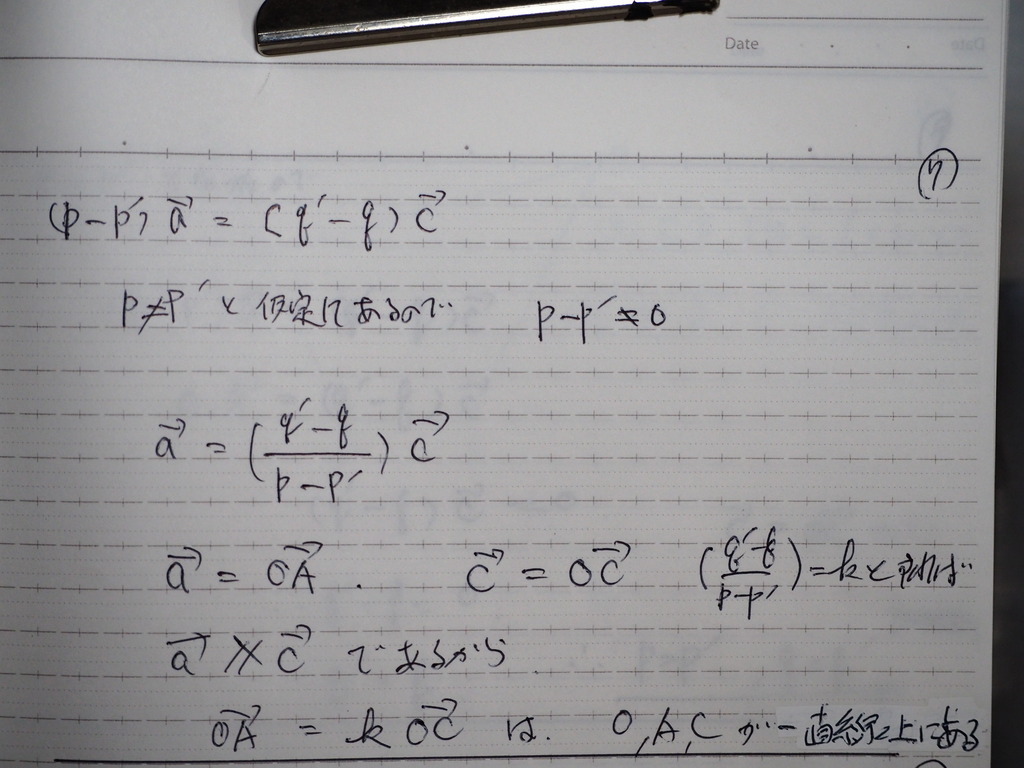 Date
⑦
(p-p')a⃗ = (q'-q)c⃗
p≠p' と仮定してあるので p-p'≠0
a⃗ = (q'-q / p-p') c⃗
a⃗ = OA⃗ . c⃗ = OC⃗ (q'-q / p-p') = k とすれば
a⃗ ∦ c⃗ であるから
OA⃗ = k OC⃗ は. O, A, C が一直線上にある